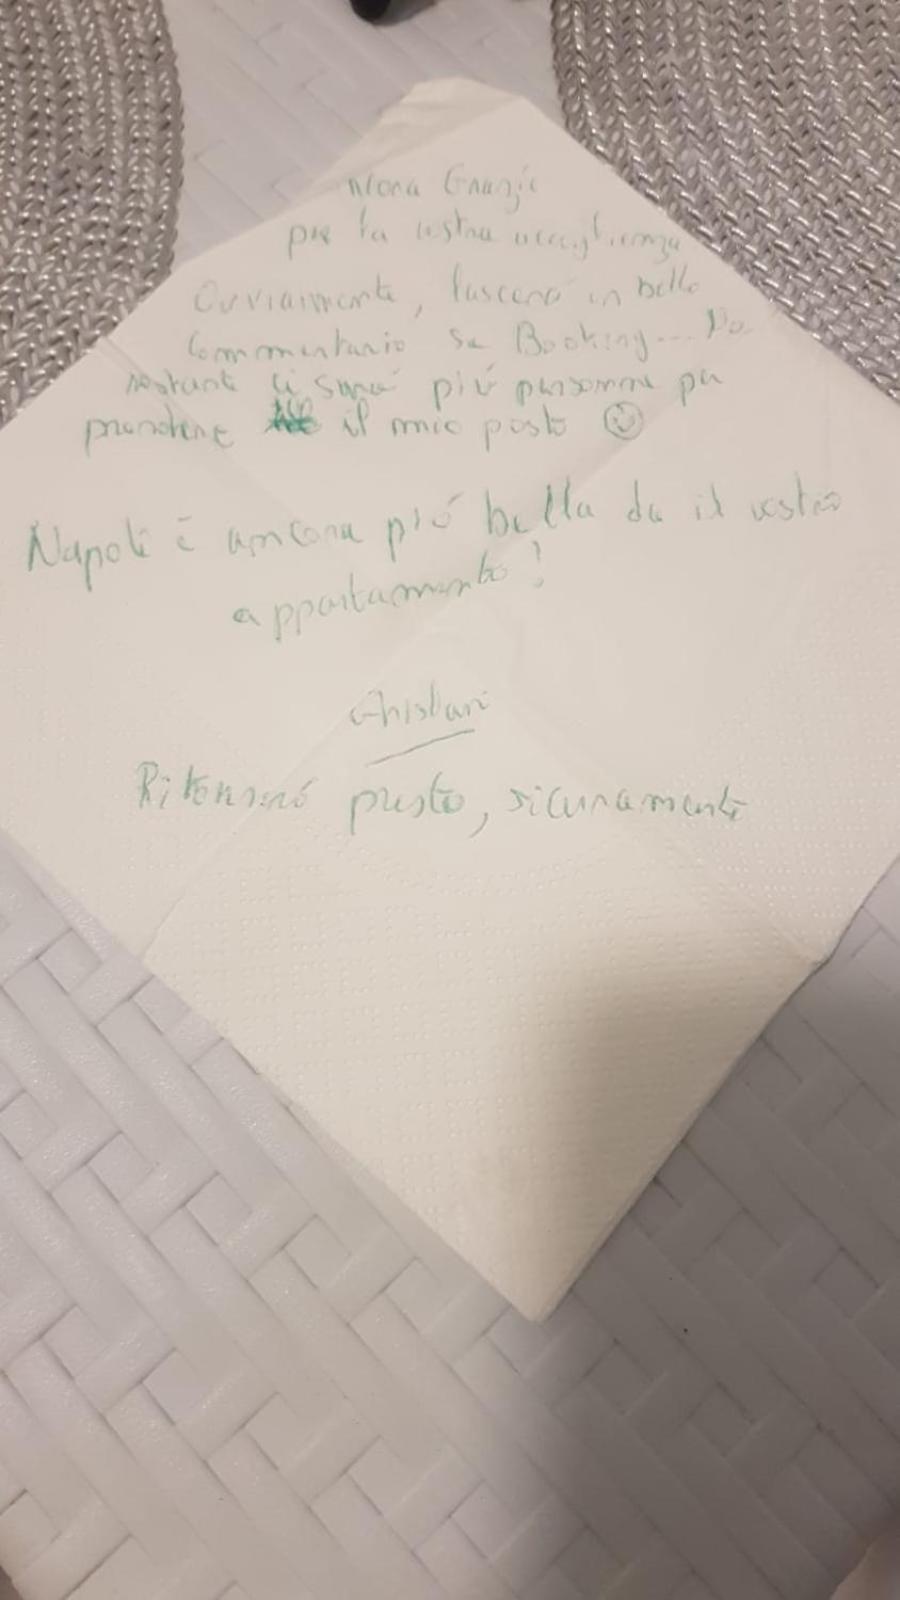 Grazie
per la vostra accoglienza
Ovviamente, lascerò un bello
commentario su Booking...
ci sarà più persone per
prendere il mio posto
Napoli è ancora più bella da il vostro
appartamento!
Ritornerò presto, sicuramente